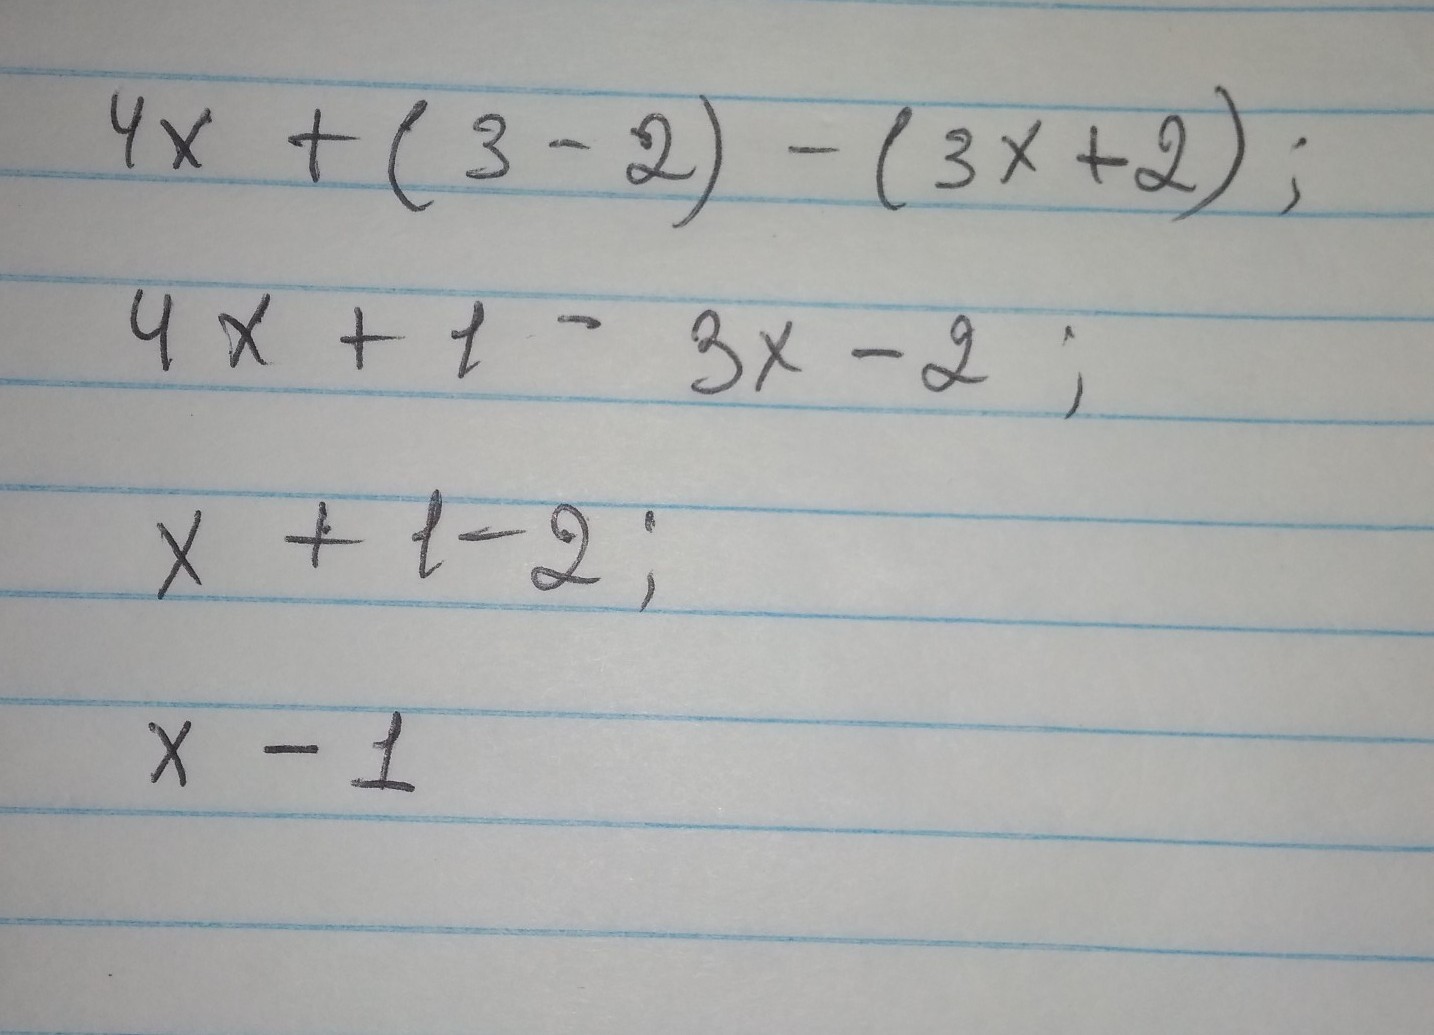 4x + (3 - 2) - (3x + 2);
4x + 1 - 3x - 2;
x + 1 - 2;
x - 1